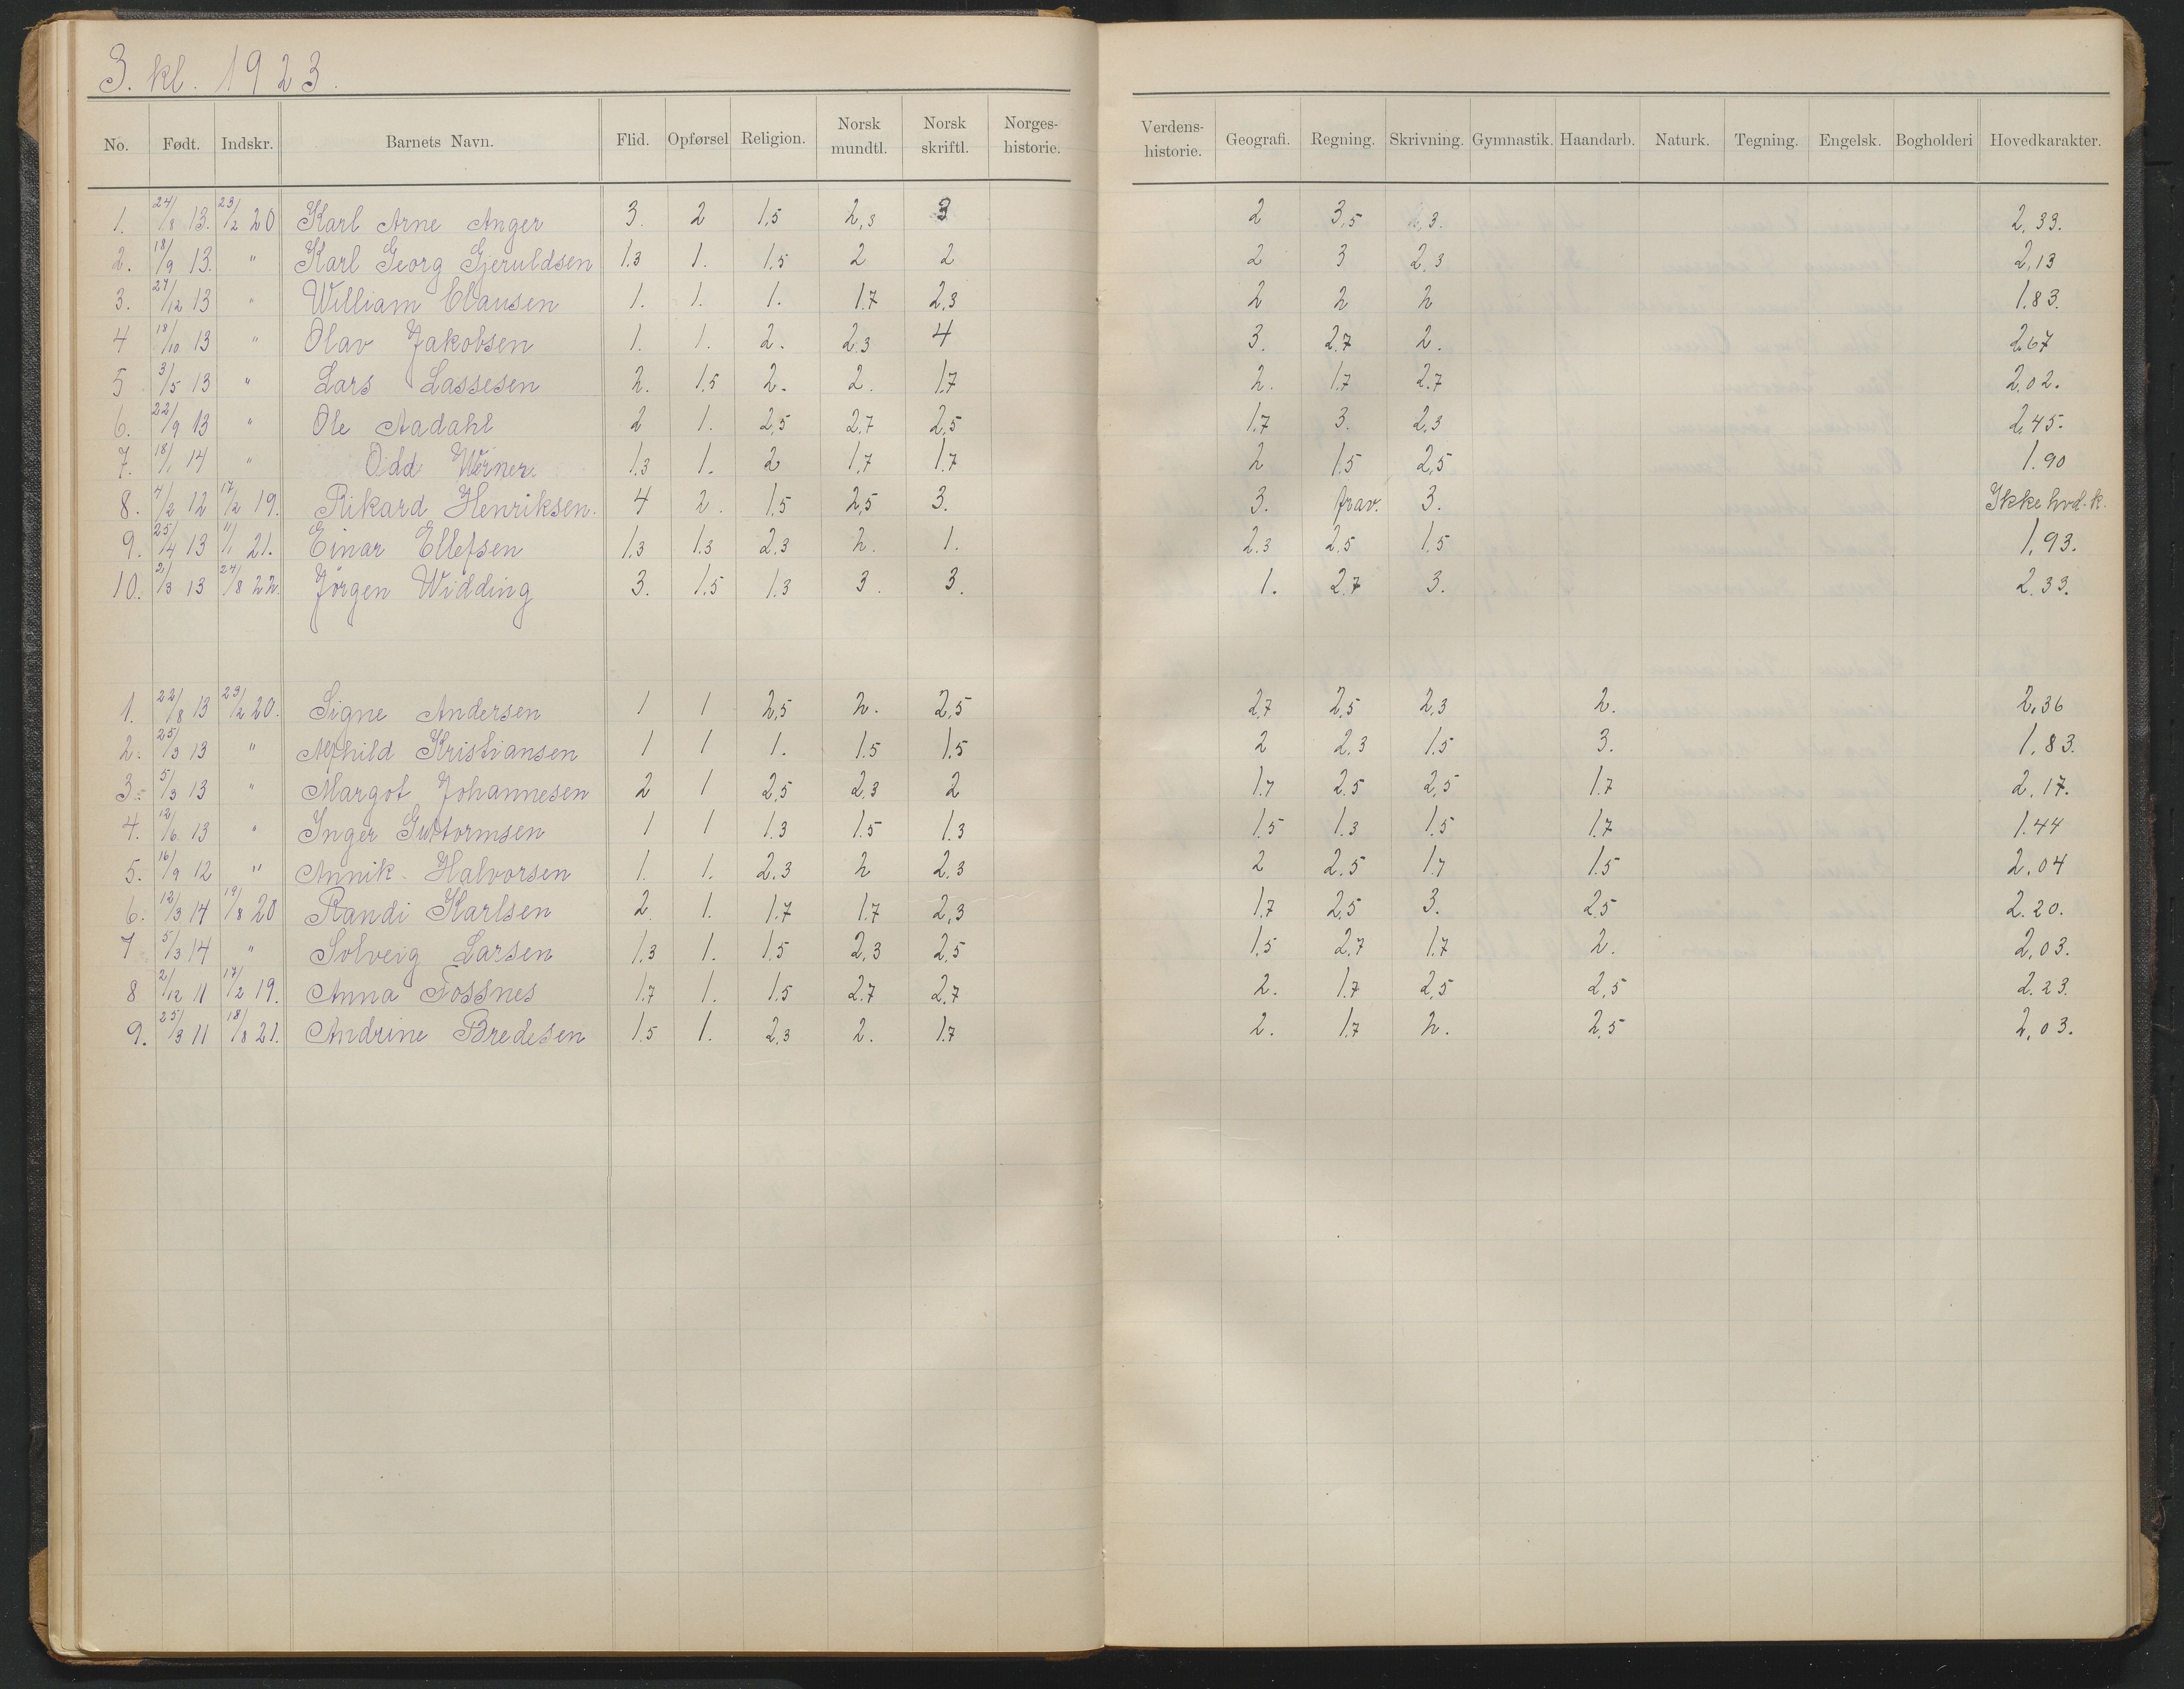 3. kl. 1923.
No. Født. Indskr. Barnets Navn. Flid. Opførsel Religion. Norsk mundtl. Norsk skriftl. Norges-historie. Verdens-historie. Geografi. Regning. Skrivning. Gymnastik. Haandarb. Naturk. Tegning. Engelsk. Bogholderi Hovedkarakter.
1. 24/8 13. 23/2 20 Karl Arne Anger 3. 2 1,5 2,3 3 2 3,5 2,33.
2. 18/9 13. " Karl Georg Gjeruldsen 1.3 1. 1,5 2 2 2 3 2,3 2,13
3. 27/12 13 " William Clausen 1. 1. 1. 1.7 2,3 2 2 2 1.83.
4 18/10 13 " Olav Jakobsen 1. 1. 2. 2.3 4 3. 2.7 2. 2.67
5 3/5 13 " Lars Lassesen 2. 1.5 2. 2. 1.7 2. 1.7 2.7 2,02.
6. 22/9 13 " Ole Aadahl 2 1. 2,5 2.7 2,5 1.7 3. 2.3 2,45.
7. 18/1 14 " Odd Werner. 1.3 1. 2 1,7 1.7 2 1.5 2,5 1.90
8. 4/2 12 17/2 19. Rikard Henriksen. 4 2. 1,5 2,5 3. 3. frav. 3. Ikke hvd.k.
9. 25/4 13 11/1 21. Einar Ellefsen 1.3 1.3 2.3 2. 1. 2.3 2.5 1.5 1,93.
10. 2/3 13 24/8 22. Jørgen Widding 3. 1.5 1.3 3. 3. 1. 2.7 3. 2.33.
1. 22/8 13 23/2 20. Signe Andersen 1 1 2,5 2. 2,5 2,7 2,5 2,3 2. 2,36
2. 25/3 13 " Kristiansen 1 1 1. 1.5 1.5 2 2.3 1.5 3. 1,83.
3. 5/3 13 " Margot Johannesen 2 1 2,5 2.3 2 1.7 2.5 2,5 1.7 2,17.
4. 12/6 13 " Inger Guttormsen 1 1 1.3 1.5 1.3 1.5 1.3 1.5 1.7 1.44
5. 16/9 12 " Annik Halvorsen 1. 1. 2.3 2 2,3 2 2.5 1.7 1.5 2,04
6. 12/3 14 19/8 20 Randi Karlsen 2. 1. 1.7 1.7 2,3 1.7 2,5 3. 2,5 2.20.
7 5/3 14 " Solveig Larsen 1.3 1. 1.5 2,3 2,5 1,5 2.7 1.7 2. 2,03.
8 2/12 11 17/2 19. Anna Fossnes 1.7 1. 1.5 2.7 2,7 2. 1.7 2,5 2,5 2.23.
9. 25/3 11 18/8 21. Andrine Bredesen 1.5 1. 2.3 2. 1.7 2. 1.7 2. 2,5 2,03.